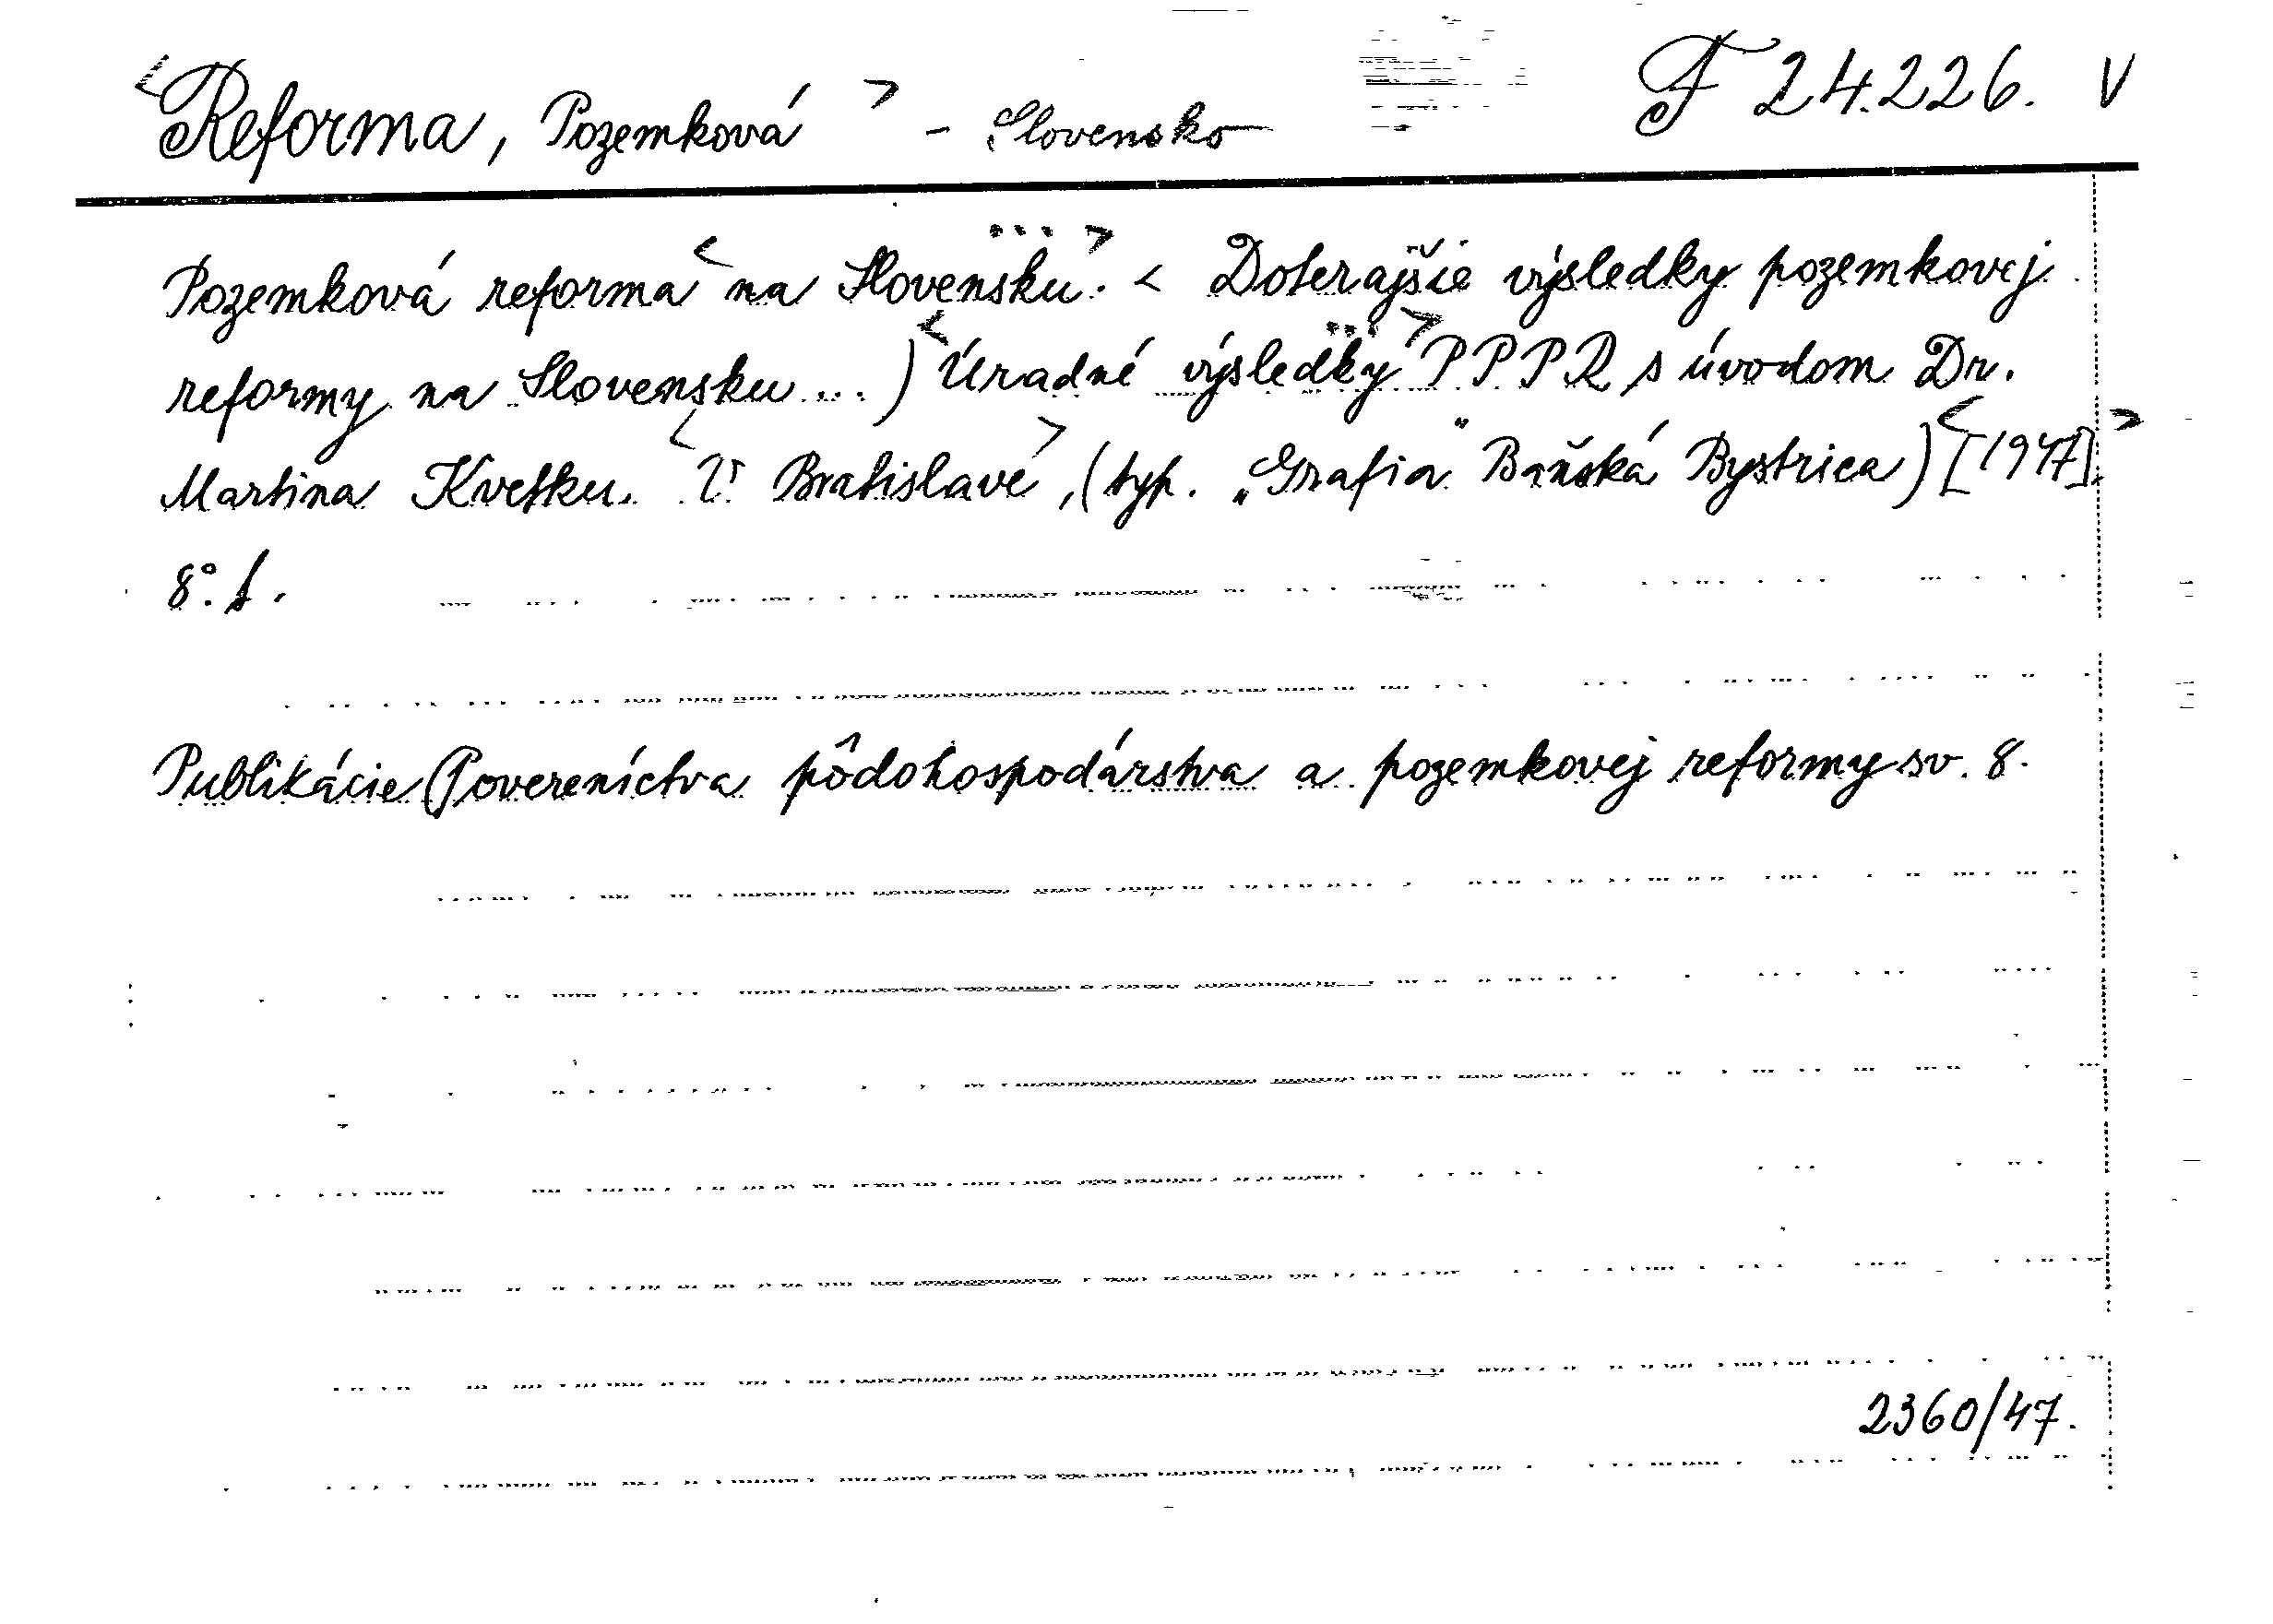 <Reforma, Pozemková> - Slovensko F 24.226. V
Pozemková reforma <na Slovensku...>. < Doterajšie výsledky pozemkovej
reformy na Slovensku ... ) <Úradné výsledky ...> PPPR s úvodom Dr.
Martina Kvetku. <V Bratislave>, (typ. „Grafia" Baňská Bystrica) <[1947].>
8°.
Publikácie Povereníctva pôdohospodárstva a pozemkovej reformy sv. 8.
2360/47.